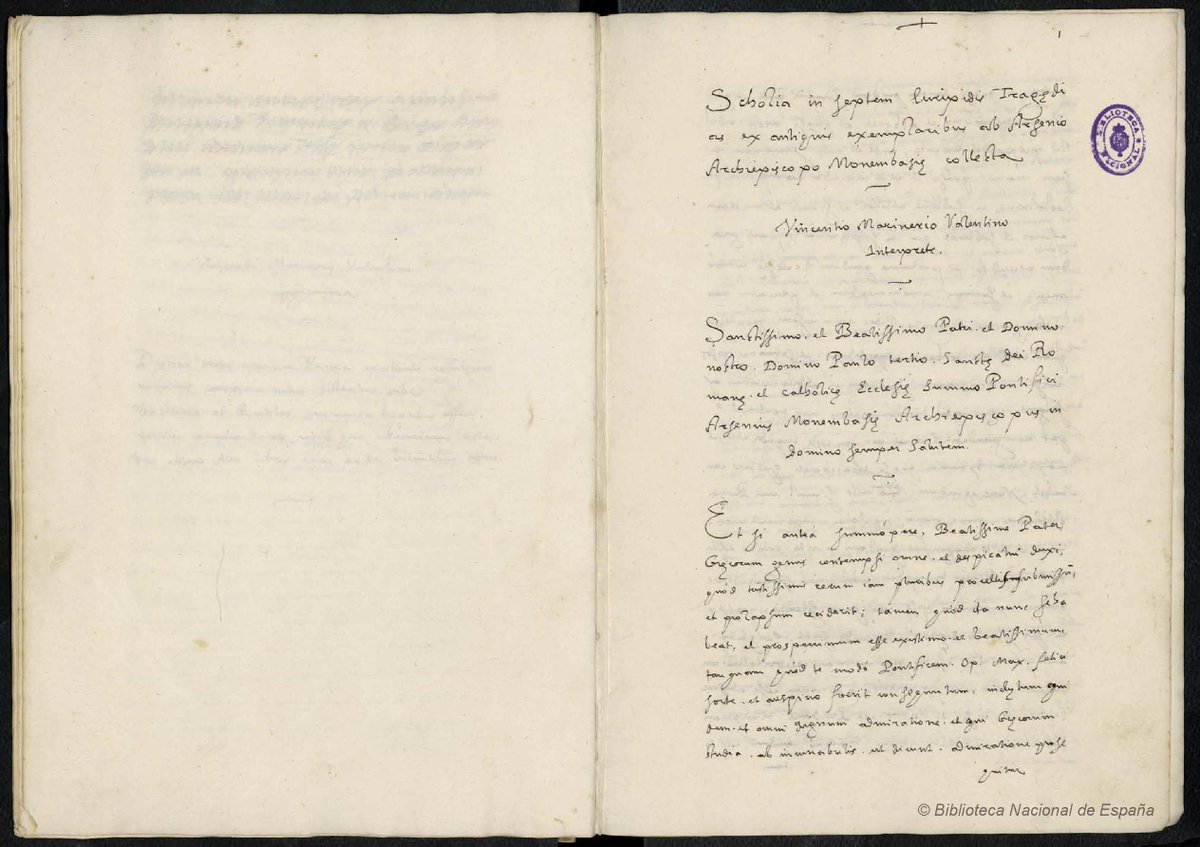 1
Scholia in septem Euripidis Tragędi
as ex antiquis exemplaribus ab Arsenio
Archiepiscopo Monembasię collecta
Vincentio Marinerio Valentino
Interprete.
Sanctissimo. et Beatissimo Patri. et Domino
nostro. Domino Paulo tertio. Sanctę Dei Ro
manę. et Catholicę Ecclesię Summo Pontifici
Arsenius Monembasię Archiepiscopus in
Domino semper Salutem.
Et si anteà summópere, Beatissime Pater,
Gręcorum genus contempsi omne. et despicatui duxi,
quòd tristissimis rerum iam pluribus procellis submissũ,
et prolapsum ceciderit; tamen quòd ita nunc sese ha
beat, et prosperrimum esse existimo. et beatissimum,
tanquam quòd te modò Pontificem. Op. Max. felici
sorte. et auspicio fuerit consequutum, inclytum qui
dem. et omni dignum admiratione. et qui Gręcorum
studia. ab incunabulis. ut dicunt. admiratione prose
quitur
BIBLIOTECA NACIONAL
© Biblioteca Nacional de España